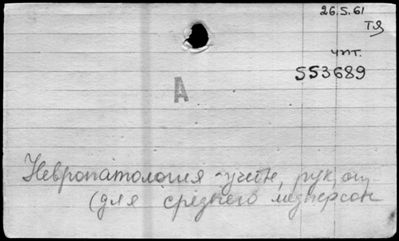 26.5.61
ТЗ
чит.
553689
А
Невропатология - учебн. рук.
(для среднего медперсон